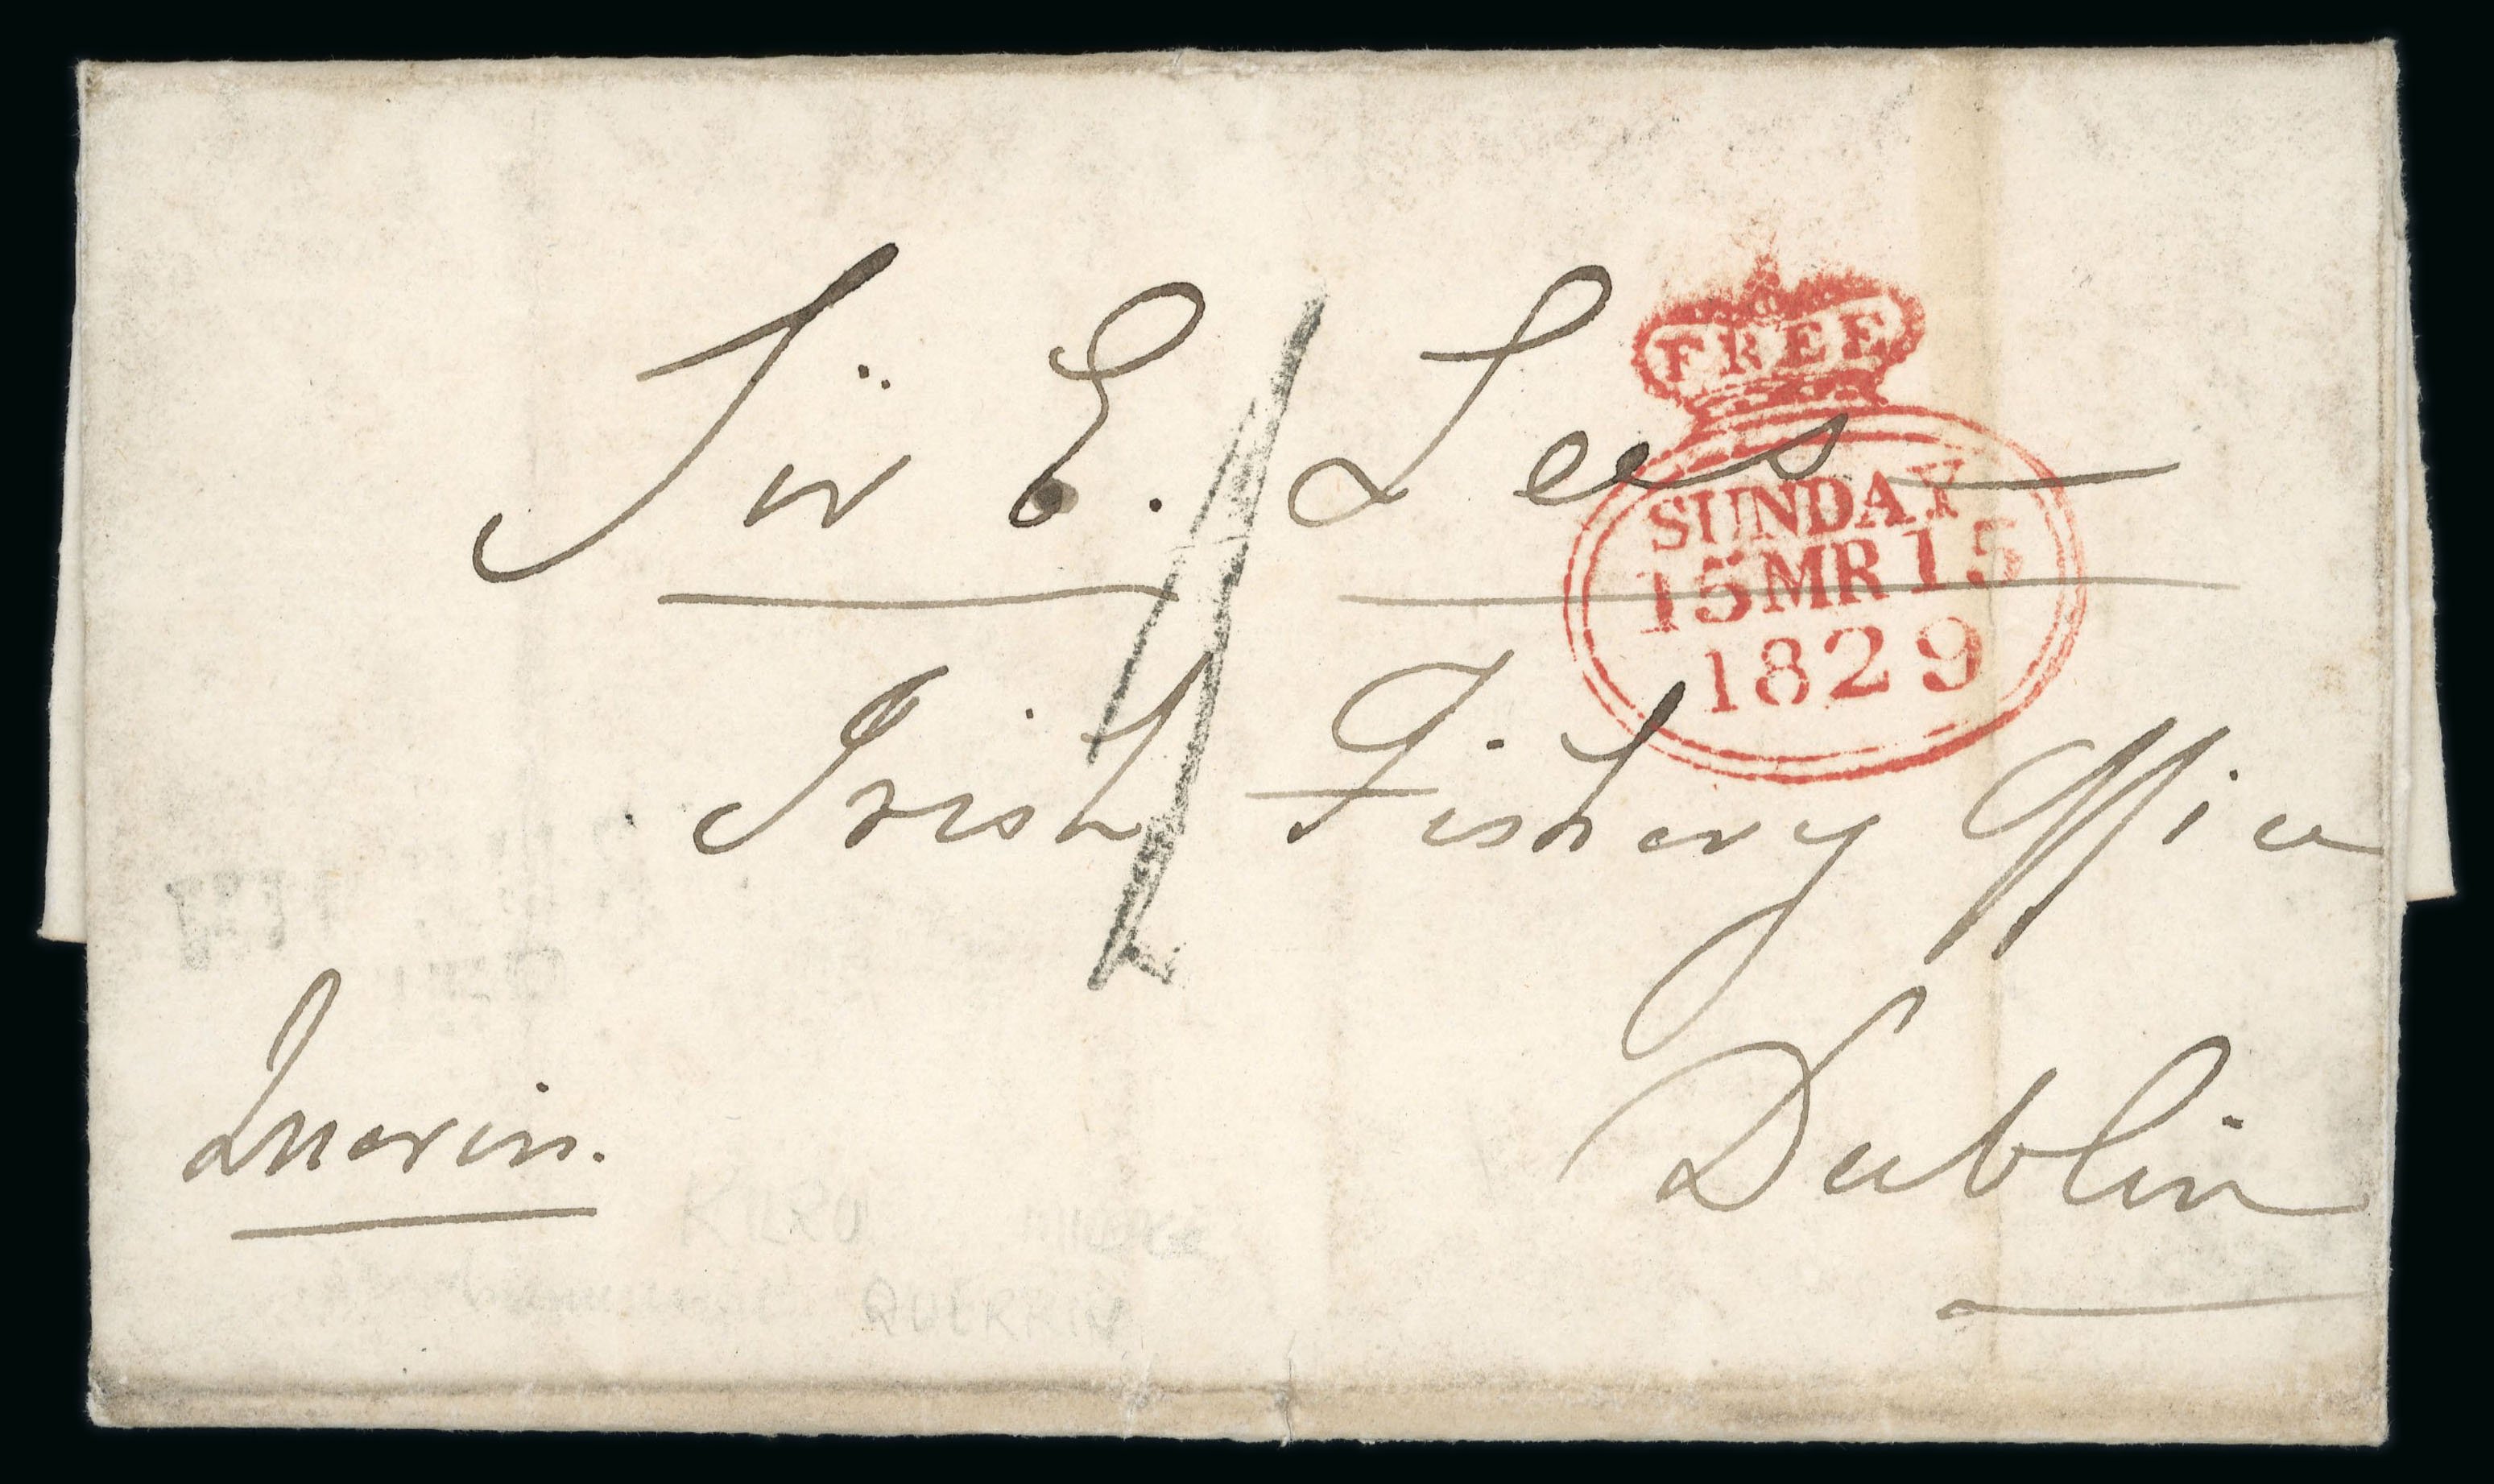 Sir E. Lees
FREE
SUNDAY
15 MR 15
1829
Irish Fishery Office
Dublin
Querin.
QUERRIN